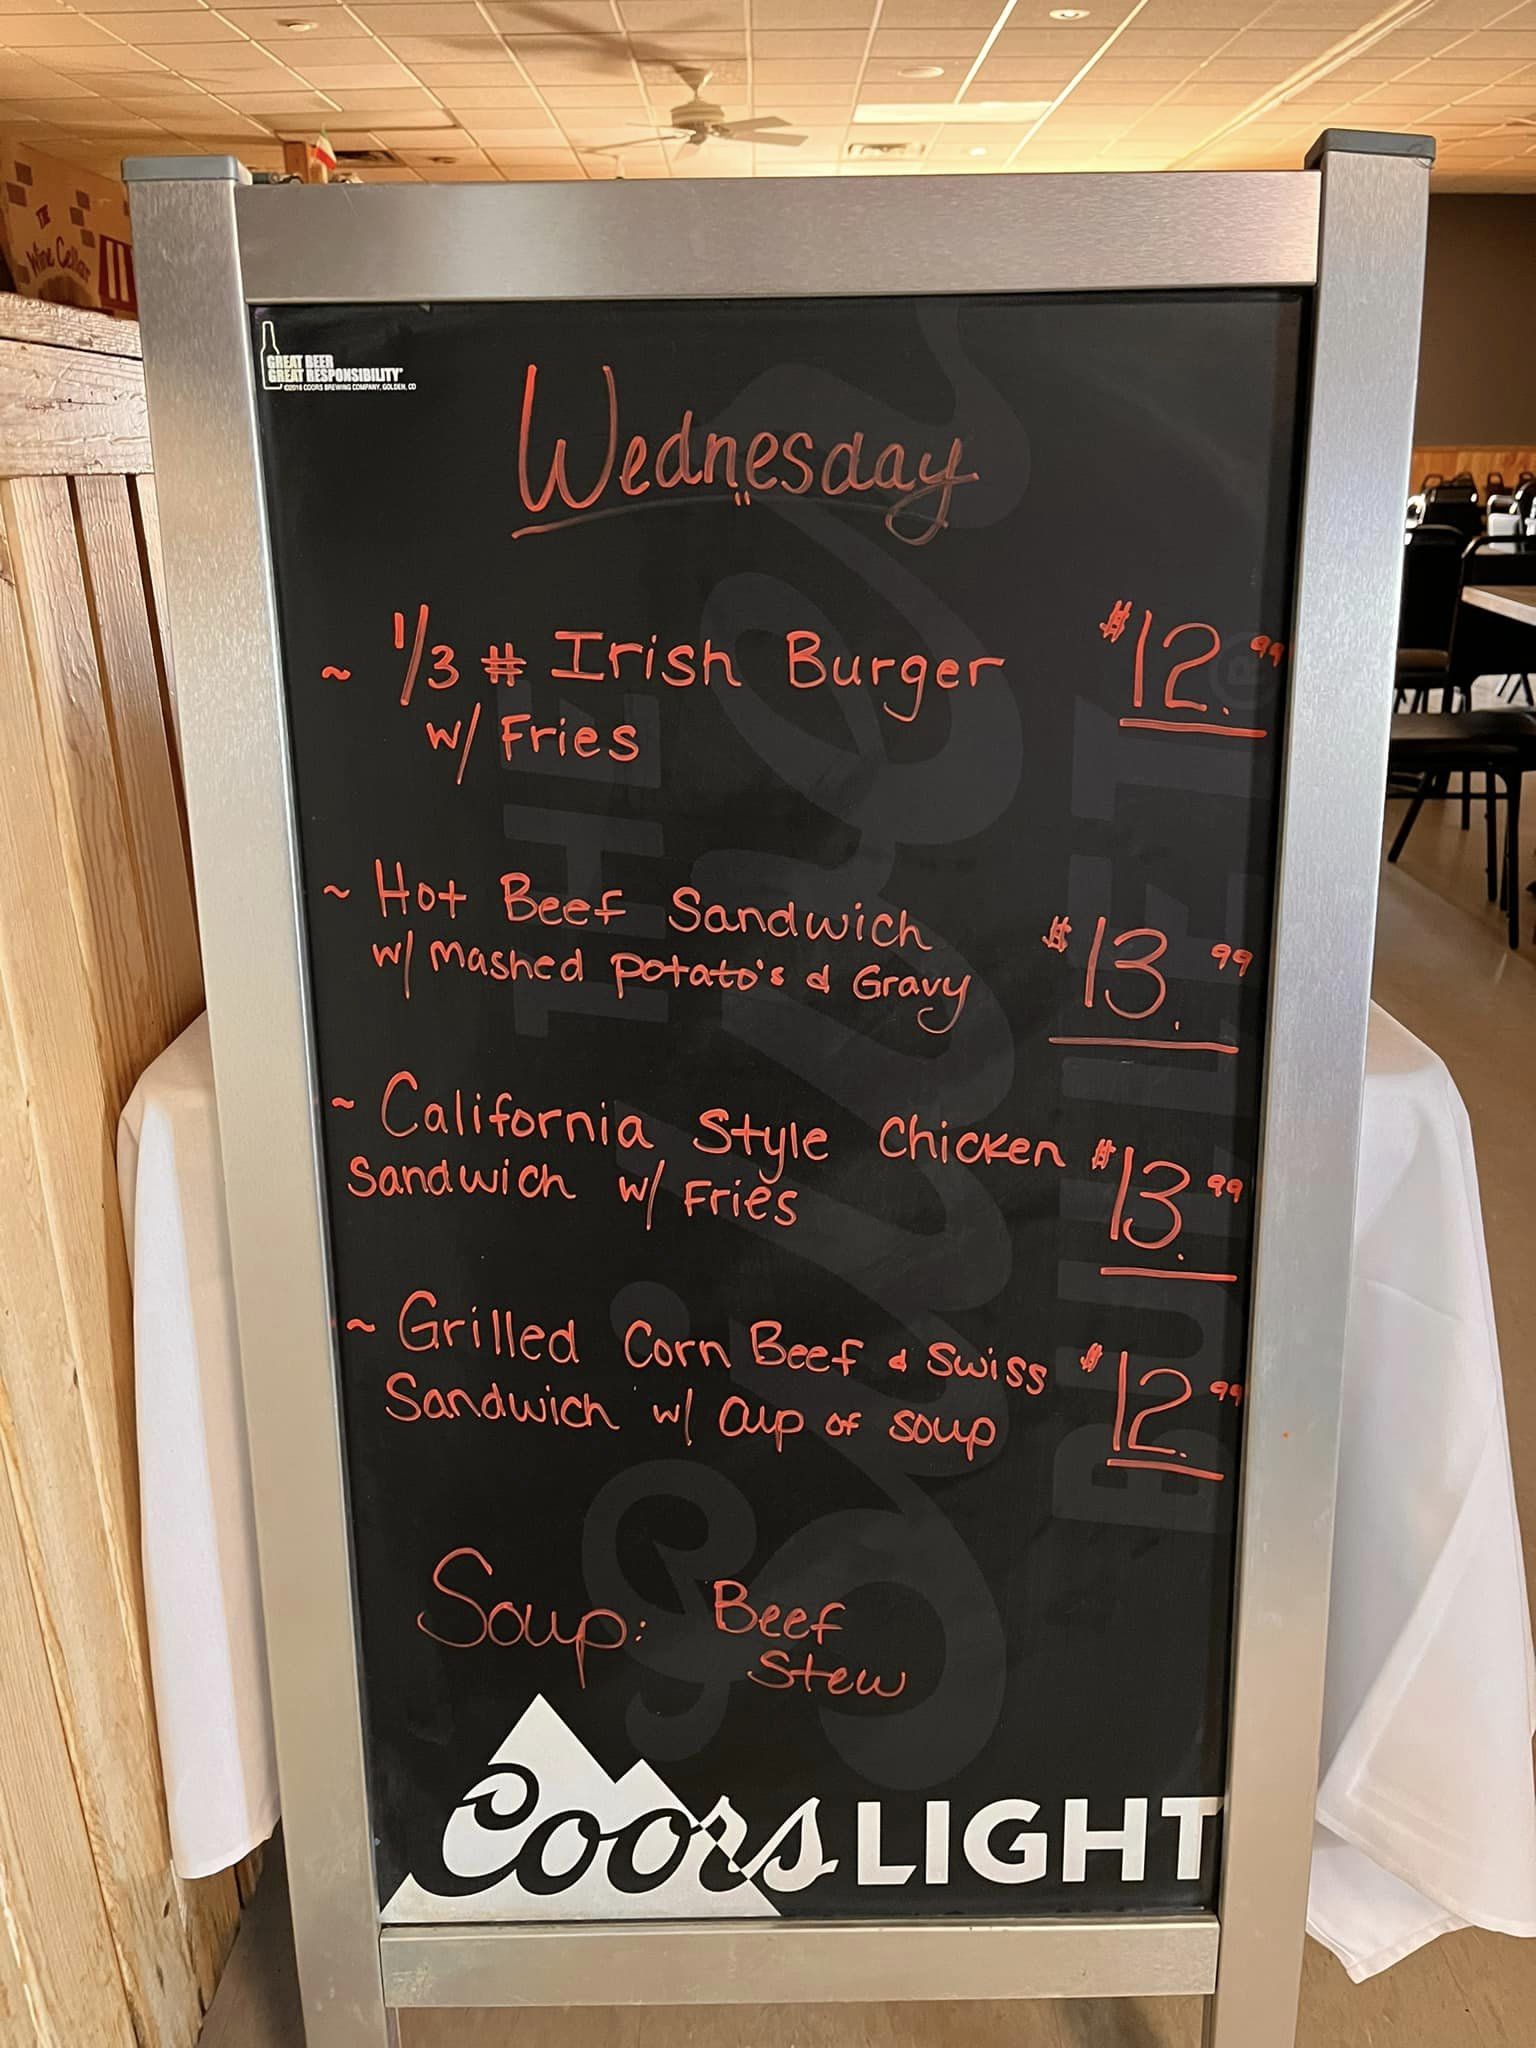 The
Wine Cellar
GREAT BEER
GREAT RESPONSIBILITY®
©2018 COORS BREWING COMPANY, GOLDEN, CO
Wednesday
~ 1/3 # Irish Burger $12.99
w/ Fries
~ Hot Beef Sandwich $13.99
w/ mashed potato's & Gravy
~ California Style Chicken $13.99
Sandwich w/ Fries
~ Grilled Corn Beef & Swiss $12.99
Sandwich w/ cup of soup
Soup: Beef
Stew
THE
Silver
BULLET®
Coors LIGHT